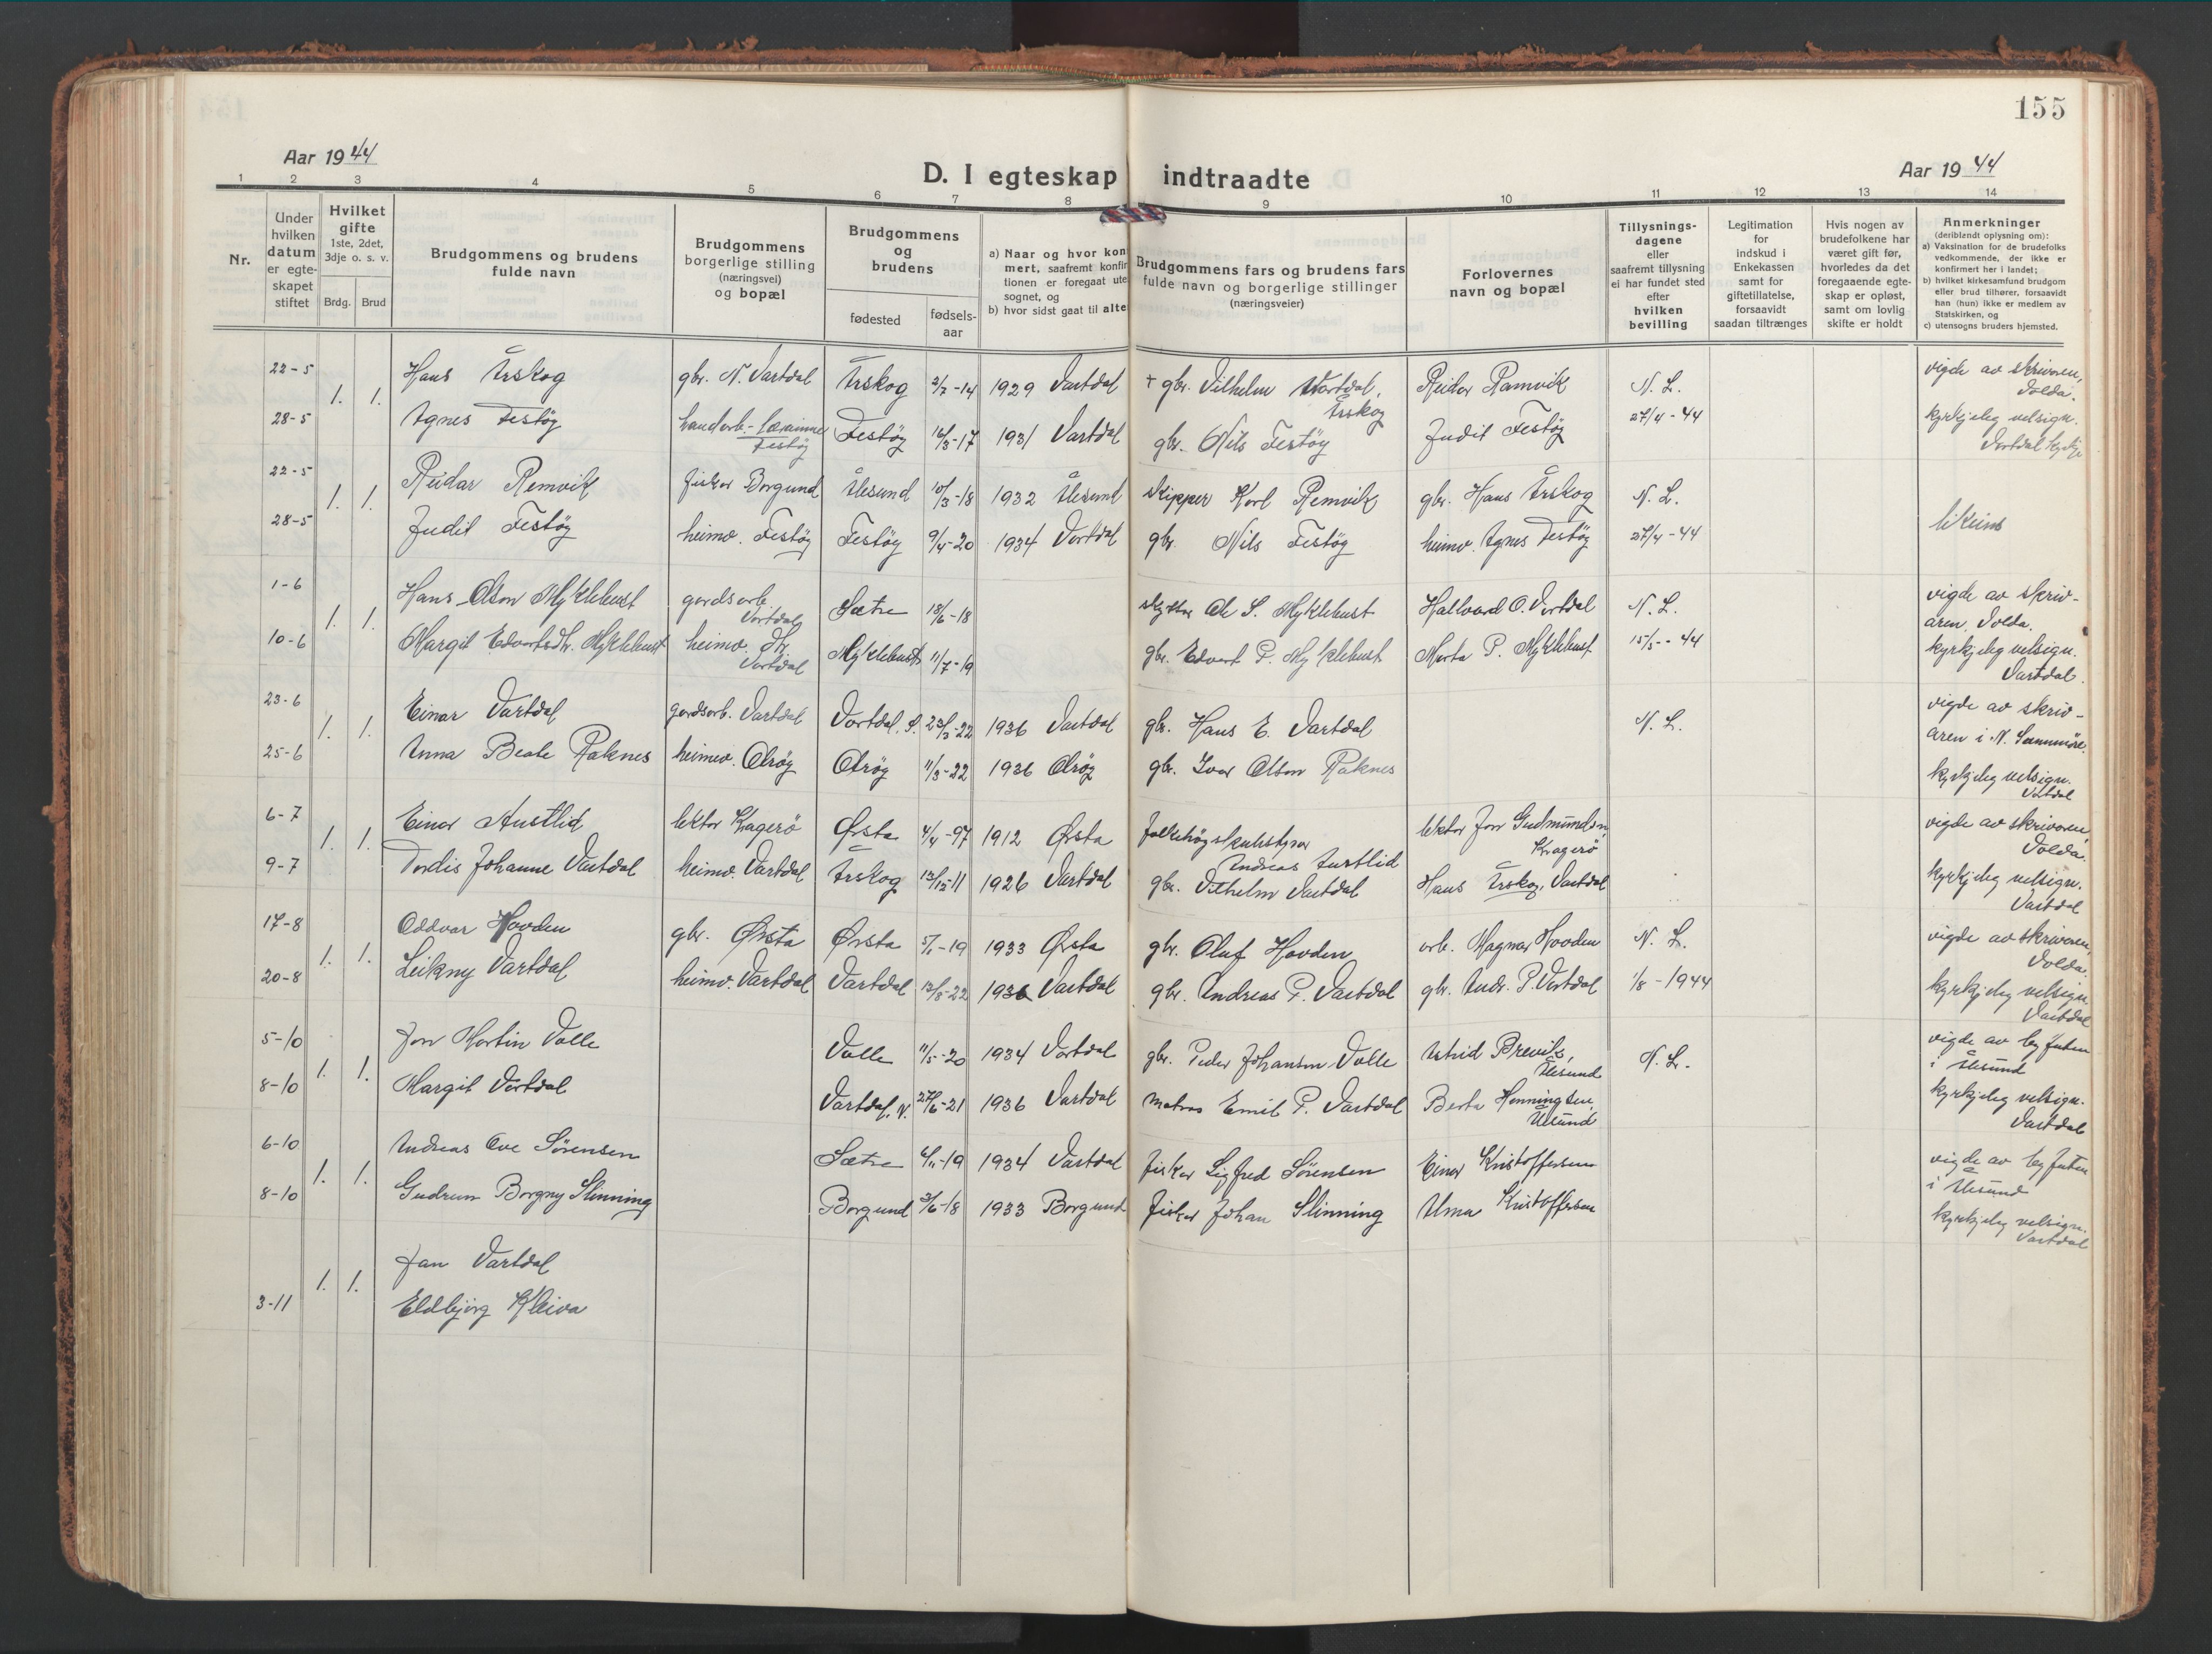 155
Aar 1944
D. I egteskap indtraadte
Aar 1944
1 2 3 4 5 6 7 8 9 10 11 12 13 14
Nr.
Under
hvilken
datum
er egte-
skapet
stiftet
Hvilket
gifte
1ste, 2det,
3dje o. s. v.
Brdg. Brud
Brudgommens og brudens
fulde navn
Brudgommens
borgerlige stilling
(næringsvei)
og bopæl
Brudgommens
og
brudens
fødested
fødsels-
aar
a) Naar og hvor kon
mert, saafremt konfir
tionen er foregaat ute
sognet, og
b) hvor sidst gaat til alte
Brudgommens fars og brudens fars
fulde navn og borgerlige stillinger
(næringsveier)
Forlovernes
navn og bopæl
Tillysnings-
dagene
eller
saafremt tillysning
ei har fundet sted
efter
hvilken
bevilling
Legitimation
for
indskud i
Enkekassen
samt for
giftetillatelse,
forsaavidt
saadan tiltrænges
Hvis nogen av
brudefolkene har
været gift før,
hvorledes da det
foregaaende egte-
skap er opløst,
samt om lovlig
skifte er holdt
Anmerkninger
(deriblandt oplysning om):
a) Vaksination for de brudefolks
vedkommende, der ikke er
konfirmert her i landet;
b) hvilket kirkesamfund brudgom
eller brud tilhører, forsaavidt
han (hun) ikke er medlem av
Statskirken, og
c) utensogns bruders hjemsted.
22-5 1. 1. Hans Årskog gbr. N. Vartdal Årskog 2/7-14 1929 Vartdal + gbr. Vilhelm Vartdal, Årskog Reidar Ramvik N. L. vigde av skrivaren, Volda.
28-5 Agnes Festøy handarb.-lærarinne Festøy Festøy 16/3-17 1931 Vartdal gbr. Nils Festøy Judit Festøy 27/4-44 kyrkjeleg velsign. Vartdal kyrkje
22-5 1. 1. Reidar Remvik fisker Borgund Ålesund 10/3-18 1932 Ålesund skipper Karl Remvik gbr. Hans Årskog N. L.
28-5 Judit Festøy heimv. Festøy Festøy 9/4-20 1934 Vartdal gbr. Nils Festøy heimv. Agnes Festøy 27/4-44 likeins
1-6 1. 1. Hans Olson Myklebust gardsarb. Vartdal Sætre 18/6-18 Ole S. Myklebust Hallvard O. Vartdal N. L. vigde av skriv-
aren, Volda.
10-6 Margit Edvartsdtr. Myklebust heimv. Vartdal Myklebust 11/7-19 gbr. Edvart P. Myklebust Marta P. Myklebust 15/5-44 kyrkjeleg velsign. Vartdal.
23-6 1. 1. Einar Vartdal gardsarb. Vartdal Vartdal, S. 23/3-22 1936 Vartdal gbr. Hans E. Vartdal N. L. vigde av skriv-
aren i N. Sunnmøre.
25-6 Anna Beate Raknes heimv. 11/3-22 1936 gbr. Ivar Olson Raknes kyrkjeleg velsign. Vartdal
6-7 1. 1. Einar Austlid lektor Kragerø Ørsta 4/4-97 1912 Ørsta folkehøgskulestyrar Andreas Austlid lektor Jon Gudmundsen, Kragerø vigde av skrivaren, Volda.
9-7 Tordis Johanne Vartdal heimv. Vartdal Årskog 13/12-11 1926 Vartdal gbr. Vilhelm Vartdal Hans Årskog, Vartdal kyrkjeleg velsign. Vartdal
17-8 1. 1. Oddvar Hovden gbr. Ørsta Ørsta 5/1-19 1933 Ørsta gbr. Oluf Hovden arb. Magnar Hovden N. L. vigde av skrivaren, Volda.
20-8 Leikny Vartdal heimv. Vartdal Vartdal 12/8-22 1936 Vartdal gbr. Andreas P. Vartdal gbr. Andr. P. Vartdal 1/8-1944 kyrkjeleg velsign. Vartdal
5-10 1. 1. Jon Martin Valle Valle 11/5-20 1934 Vartdal gbr. Peder Johansen Valle Astrid Brevik, Ålesund N. L. vigde av byfuten
i Ålesund
8-10 Margit Vartdal Vartdal, N. 27/6-21 1936 Vartdal matros Emil P. Vartdal Berta Henningsen, Ålesund kyrkjeleg velsign. Vartdal
6-10 1. 1. Andreas Ove Sørensen Sætre 4/11-19 1934 Vartdal fisker Sigfred Sørensen Einar Kristoffersen vigde av byfuten
i Ålesund
8-10 Gudrun Borgny Slinning Borgund 3/6-18 1933 Borgund fisker Johan Slinning Alma Kristoffersen kyrkjeleg velsign. Vartdal
1. 1. Jan Vartdal
3-11 Eldbjørg Kleiva